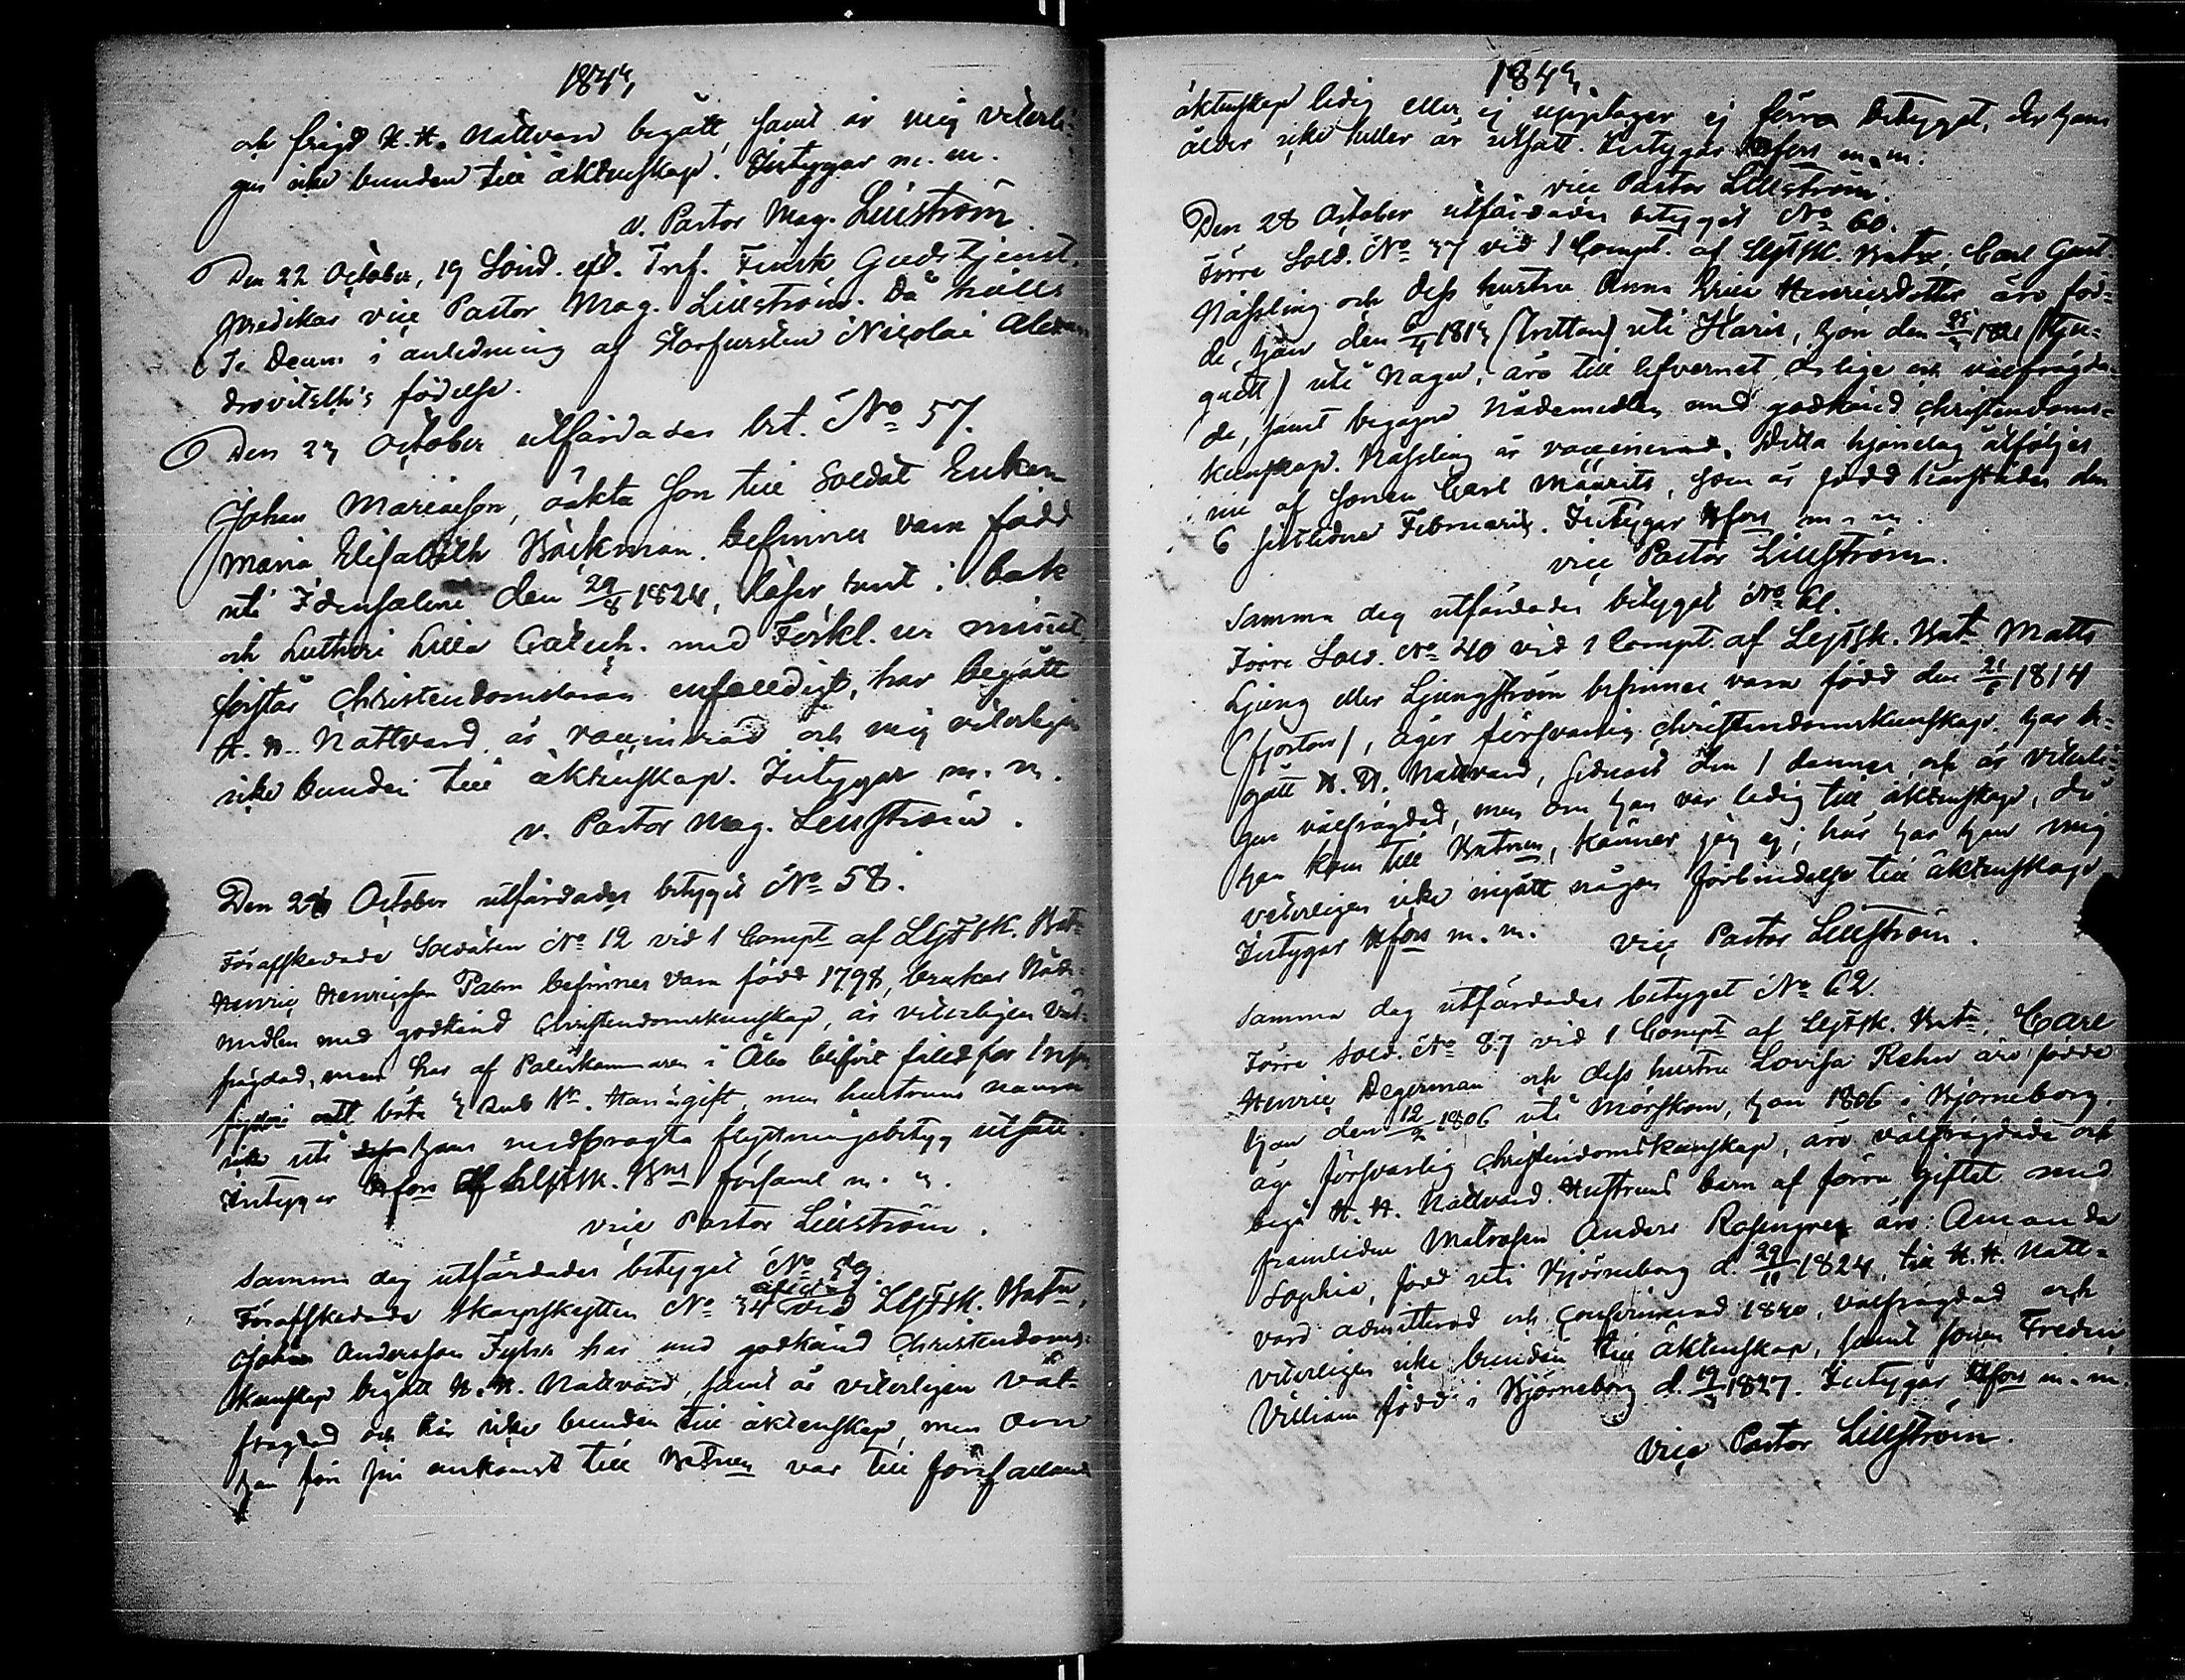 1843,
och frägd H. H. Nattvard begått, samt är mig veterli-
gen icke bunden till äktenskap. Intygar m. m.
v. Pastor Mag. Lillström.
Den 22 October, 19 Sönd. eft. Tref. Finsk Gudstjenst.
Predikar vice Pastor Mag. Lillström. Då hölls
Te Deum i anledning af Storfursten Nicolai Alexan
drovitsch's födelse.
Den 23 October utfärdades bet. No 57.
Johan Mariæson, oäkta son till Soldat Enkan
Maria Elisabeth Bäckman befinnes vara född
uti Idensalmi den 29/8 1824, läser rent i bok
och Lutheri Lilla Catech. med Förkl. ur minnet,
förstår Christendomsläran enfaldigt, har begått
H. H. Nattvard, är vaccinerad och mig veterligen
icke bunden till äktenskap. Intygar m. m.
v. Pastor Mag. Lillström.
Den 28 October utfärdades betyget No 58.
Förafskedade Soldaten No 12 vid 1 Compt af LGFSk. Bat:
Henric Henricsson Palm befinnes vara född 1798, brukar Nåde-
medlen med godkänd Christendomskunskap, är veterligen väl-
frägdad, men har af Poliskammaren i Åbo blifvit fälld för
att böta 3 Rub Sr. Han är gift, men hustruns namn
icke uti hans medbragta flyttningsbetyg utsatt.
Intygar Hfors af LGFSk. Bns församl m. m.
vice Pastor Lillström.
Samma dag utfärdades betyget No 59.
Förafskedade Skarpskytten No 34 vid LGFSk. Batn,
Johan Andersson har med godkänd Christendoms-
kunskap begått H. H. Nattvard, samt är veterligen väl-
frägdad och här icke bunden till äktenskap, men om
han före sin ankomst till Batnen var till
1843.
äktenskap ledig eller ej upptager ej förra betyget, der hans
ålder icke heller är utsatt. Intygar Hfors m. m.
vice Pastor Lillström.
Den 28 October utfärdades betyget No 60.
Förre Sold. No 37 vid 1 Compt. af LGFSk. Batn: Carl Gust.
Nässling och dess hustru Anna Erica Henricsdotter äro föd-
de, han den 1813 (tretton) uti Karis, hon den 1821 (tju-
guett) uti Nagu, äro till lefvernet ärlige och välfrägda-
de, samt begagna Nådemedlen med godkänd christendoms-
kunskap. Nässling är vaccinerad. Detta hjonelag åtföljes
nu af sonen Carl Mauritz, som är född härstädes den
6 sistlidne Februarii. Intygar Hfors m. m.
vice Pastor Lillström.
Samma dag utfärdades betyget No 61.
Förre Sold. No 40 vid 1 Compt. af LGFSk. Bat: Matts
Ljung eller Ljungström befinnes vara född den 21/6 1814
(fjorton), äger försvarlig christendomskunskap, har be-
gått H. H. Nattvard, sednast den 1 dennes, och är veterli-
gen välfrägdad, men om han var ledig till äktenskap, då
han kom till Batnen, känner jag ej; här har han mig
veterligen icke ingått någon förbindelse till äktenskap
Intygar Hfors m. m. vice Pastor Lillström.
Samma dag utfärdades betyget No 62.
Förre Sold. No 87 vid 1 Compt af LGFSk. Batn. Carl
Henric Degerman och dess hustru Lovisa Rehn äro födde
han den 12/2 1806 uti Mörskom, hon 1806 i Björneborg,
äga försvarlig christendomskunskap, äro välfrägdade och
begå H. H. Nattvard. Hustruns barn af förra giftet med
framlidne Matrosen Anders Rosengren äro: Amanda
Sophia, född uti Björneborg d. 29/11 1824, till H. H. Natt-
vard admitterad och confirmerad 1840, välfrägdad och
veterligen icke bunden till äktenskap, samt sonen Fredric
Villiam född i Björneborg d. 19/3 1827. Intygar Hfors m. m.
vice Pastor Lillström.